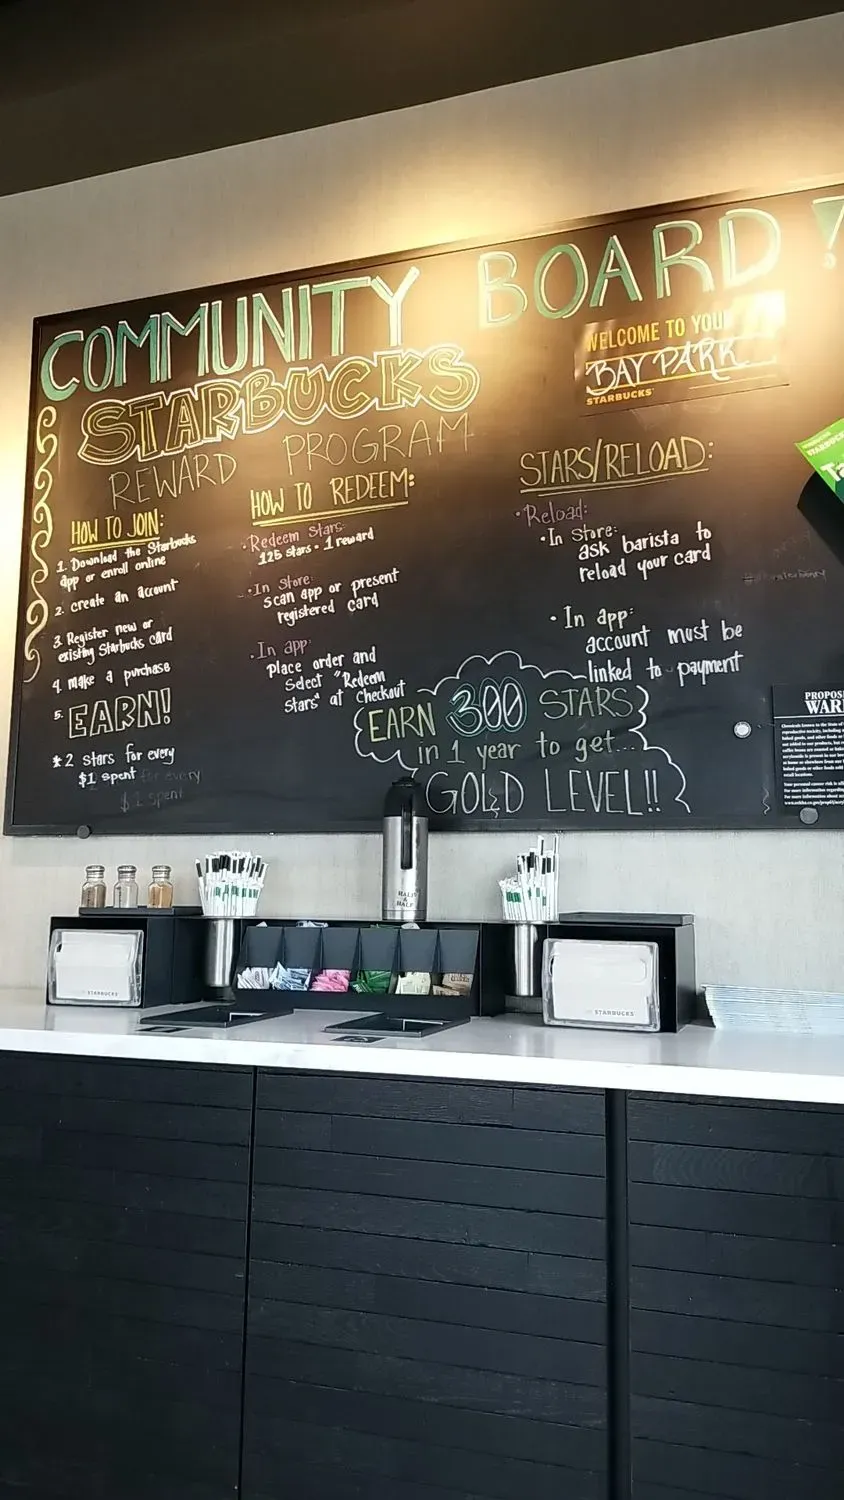 COMMUNITY BOARD!
STARBUCKS
REWARD PROGRAM
WELCOME TO YOUR
BAY PARK
STARBUCKS
HOW TO JOIN:
1. Download the Starbucks
app or enroll online
2. create an account
3. Register new or
existing Starbucks card
4. Make a purchase
5. EARN!
* 2 stars for every
$1 spent for every
$1 spent
HOW TO REDEEM:
• Redeem Stars:
125 stars = 1 reward
• In Store:
scan app or present
registered card
• In app:
Place order and
Select "Redeem
Stars" at Checkout
STARS/RELOAD:
• Reload:
• In Store:
ask barista to
reload your card
• In app:
account must be
linked to payment
EARN 300 STARS
in 1 year to get...
GOLD LEVEL!!
PROPOS
WAR
HALF
&
HALF
STARBUCKS
STARBUCKS